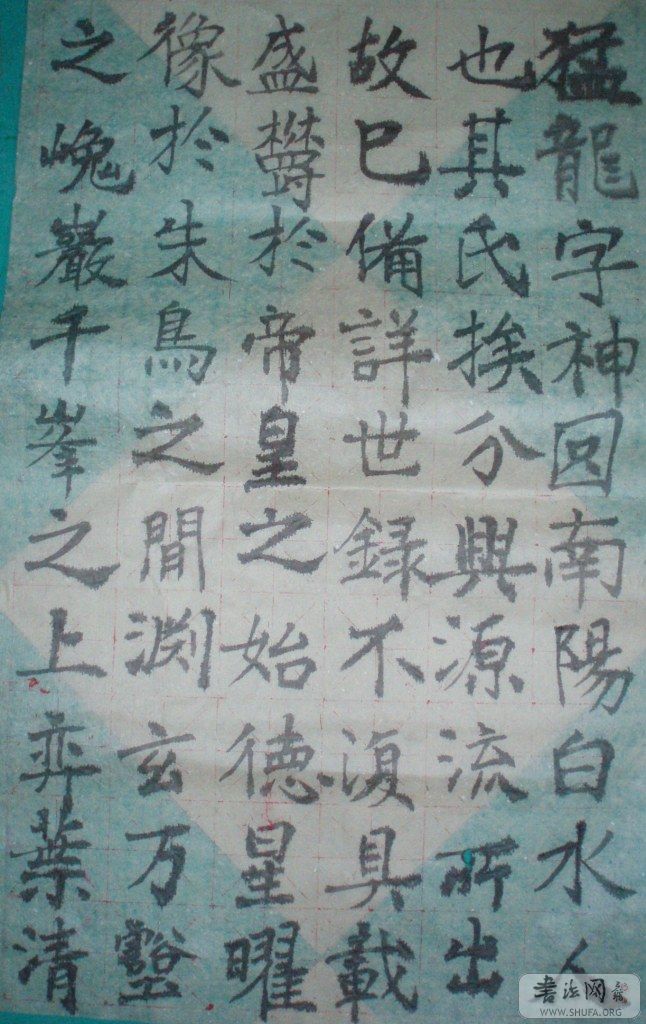 猛龍字神囙南陽白水人
也其氏挨分興源流所出
故已備詳世録不復具載
盛欝於帝皇之始德星曜
像於朱鳥之間渊玄万壑
之嵬巖千峯之上弈葉清
书法网
WWW.SHUFA.ORG